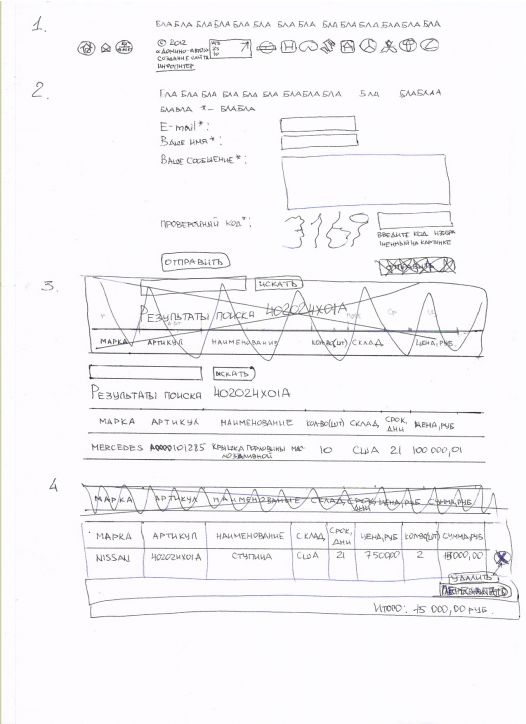 1.
БЛАБЛА БЛАБЛАБЛА БЛА БЛА БЛА БЛАБЛАБЛА БЛАБЛАБЛА
© 2012
СОЗДАНИЕ САЙТА
2.
БЛА БЛАБЛА БЛА БЛА БЛА БЛАБЛАБЛА БЛА БЛАБЛАА
БЛАБЛА *- БЛАБЛА
E-mail*:
ВАШЕ ИМЯ*:
ВАШЕ СООБЩЕНИЕ*:
ПРОВЕРОЧНЫЙ КОД*:
3169
ВВЕДИТЕ КОД ИЗОБРА
ЖЕННЫЙ НА КАРТИНКЕ
ОТПРАВИТЬ
3.
ИСКАТЬ
РЕЗУЛЬТАТЫ ПОИСКА 402024X01A
МАРКА АРТИКУЛ НАИМЕНОВАНИЕ КОЛ-ВО(ШТ) СКЛАД ЦЕНА, РУБ.
ИСКАТЬ
РЕЗУЛЬТАТЫ ПОИСКА 402024X01A
МАРКА АРТИКУЛ НАИМЕНОВАНИЕ КОЛ-ВО(ШТ) СКЛАД СРОК, ДНИ ЦЕНА, РУБ
MERCEDES 101285 КРЫШКА ГОРЛОВИНЫ МАС
ЛОЗАЛИВНОЙ 10 США 21 100 000,01
4
МАРКА АРТИКУЛ НАИМЕНОВАНИЕ СКЛАД СРОК ДНИ ЦЕНА, РУБ СУММА, РУБ.
МАРКА АРТИКУЛ НАИМЕНОВАНИЕ СКЛАД СРОК, ДНИ ЦЕНА, РУБ КОЛ-ВО(ШТ) СУММА, РУБ
NISSAN 402024X01A СТУПИЦА США 21 2 000,00
УДАЛИТЬ
ИТОГО: 15 000,00 РУБ.